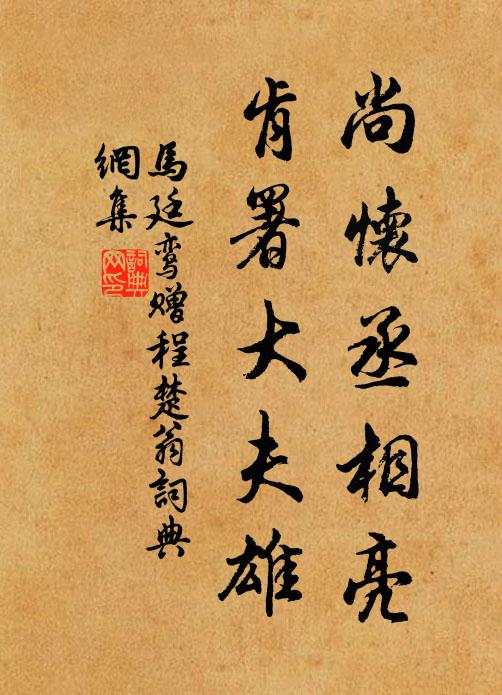 尚懷丞相亮
肯署大夫雄
馬廷鸾贈程楚翁詞典
網集
詞典网印